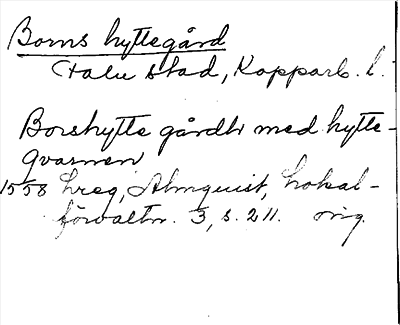 Borns hyttegård
Falu stad, Kopparb. l.
Borshytte gårdh med hytte-
qvarnen
1558 hreg, Almquist, Lokal-
förvaltn. 3, s. 211. orig.